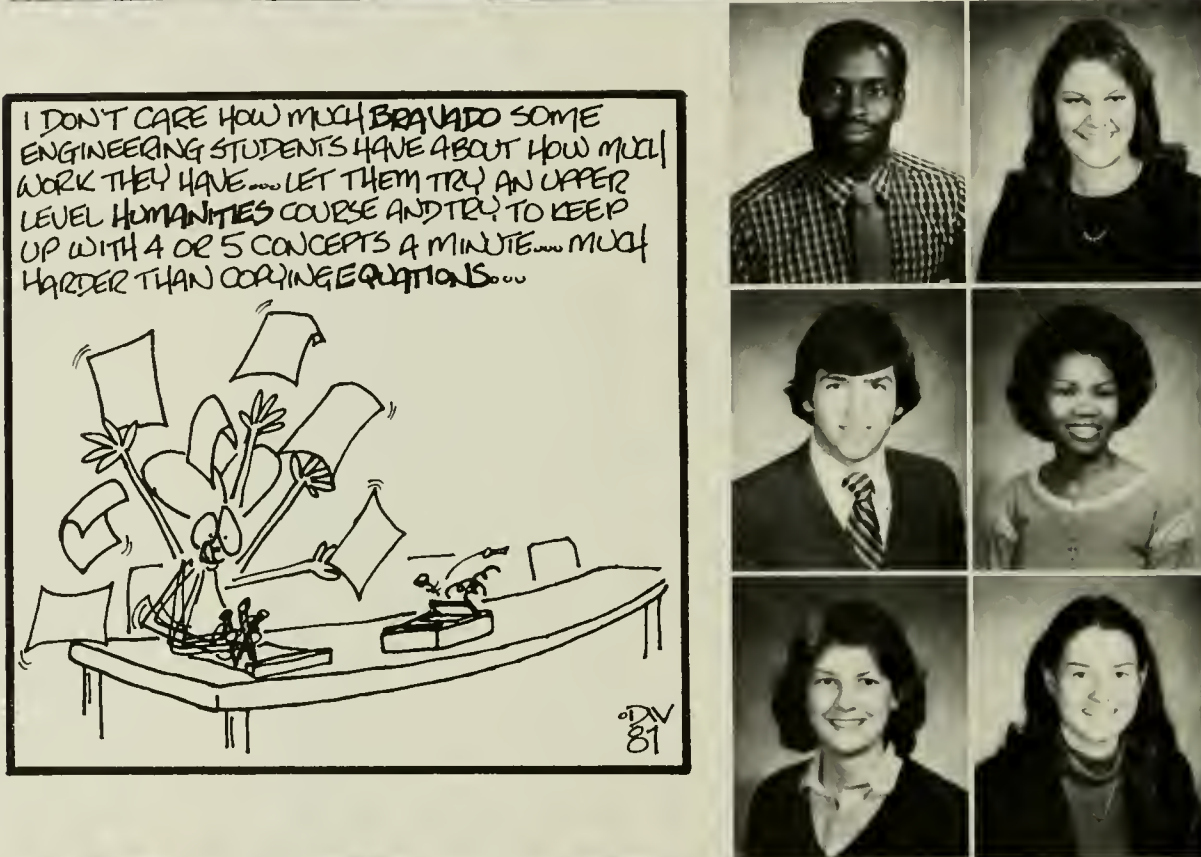 I DON'T CARE HOW MUCH BRAVADO SOME
ENGINEERING STUDENTS HAVE ABOUT HOW MUCH
WORK THEY HAVE... LET THEM TRY AN UPPER
LEVEL HUMANITIES COURSE AND TRY TO KEEP
UP WITH 4 OR 5 CONCEPTS A MINUTE... MUCH
HARDER THAN COPYING EQUATIONS...
DIV
81